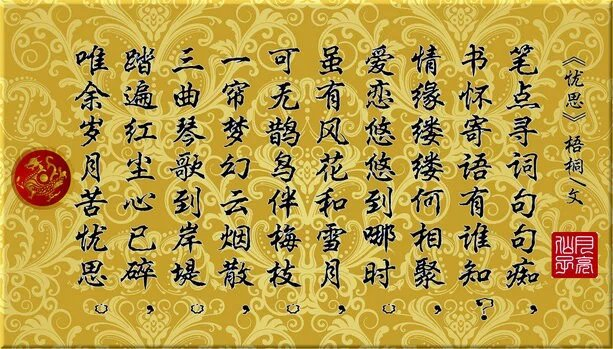 《忧思》梧桐/文
笔点寻词句句痴，
书怀寄语有谁知？
情缘缕缕何相聚，
爱恋悠悠到哪时。
虽有风花和雪月，
可无鹊鸟伴梅枝。
一帘梦幻云烟散，
三曲琴歌到岸堤。
踏遍红尘心已碎，
唯余岁月苦忧思。
月亮仙子